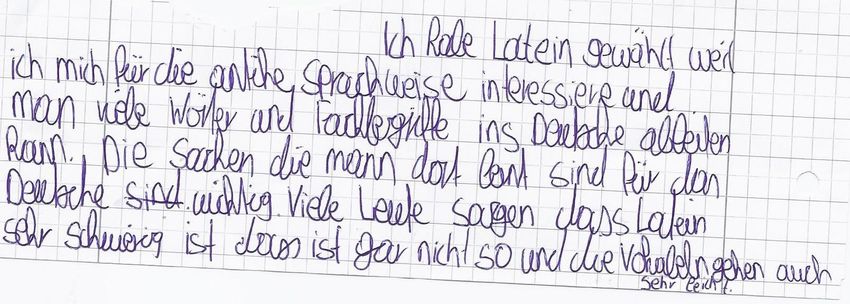 Ich habe Latein gewählt weil
ich mich für die antike Sprachweise interessiere und
man viele Wörter und Fachbegriffe ins Deutsche ableiten
kann. Die Sachen die mann dort lernt sind für dan
Deutsche sind wichtig. Viele Leute sagen dass Latein
sehr schwierig ist dass ist gar nicht so und die Vokabeln gehen auch
sehr leicht.